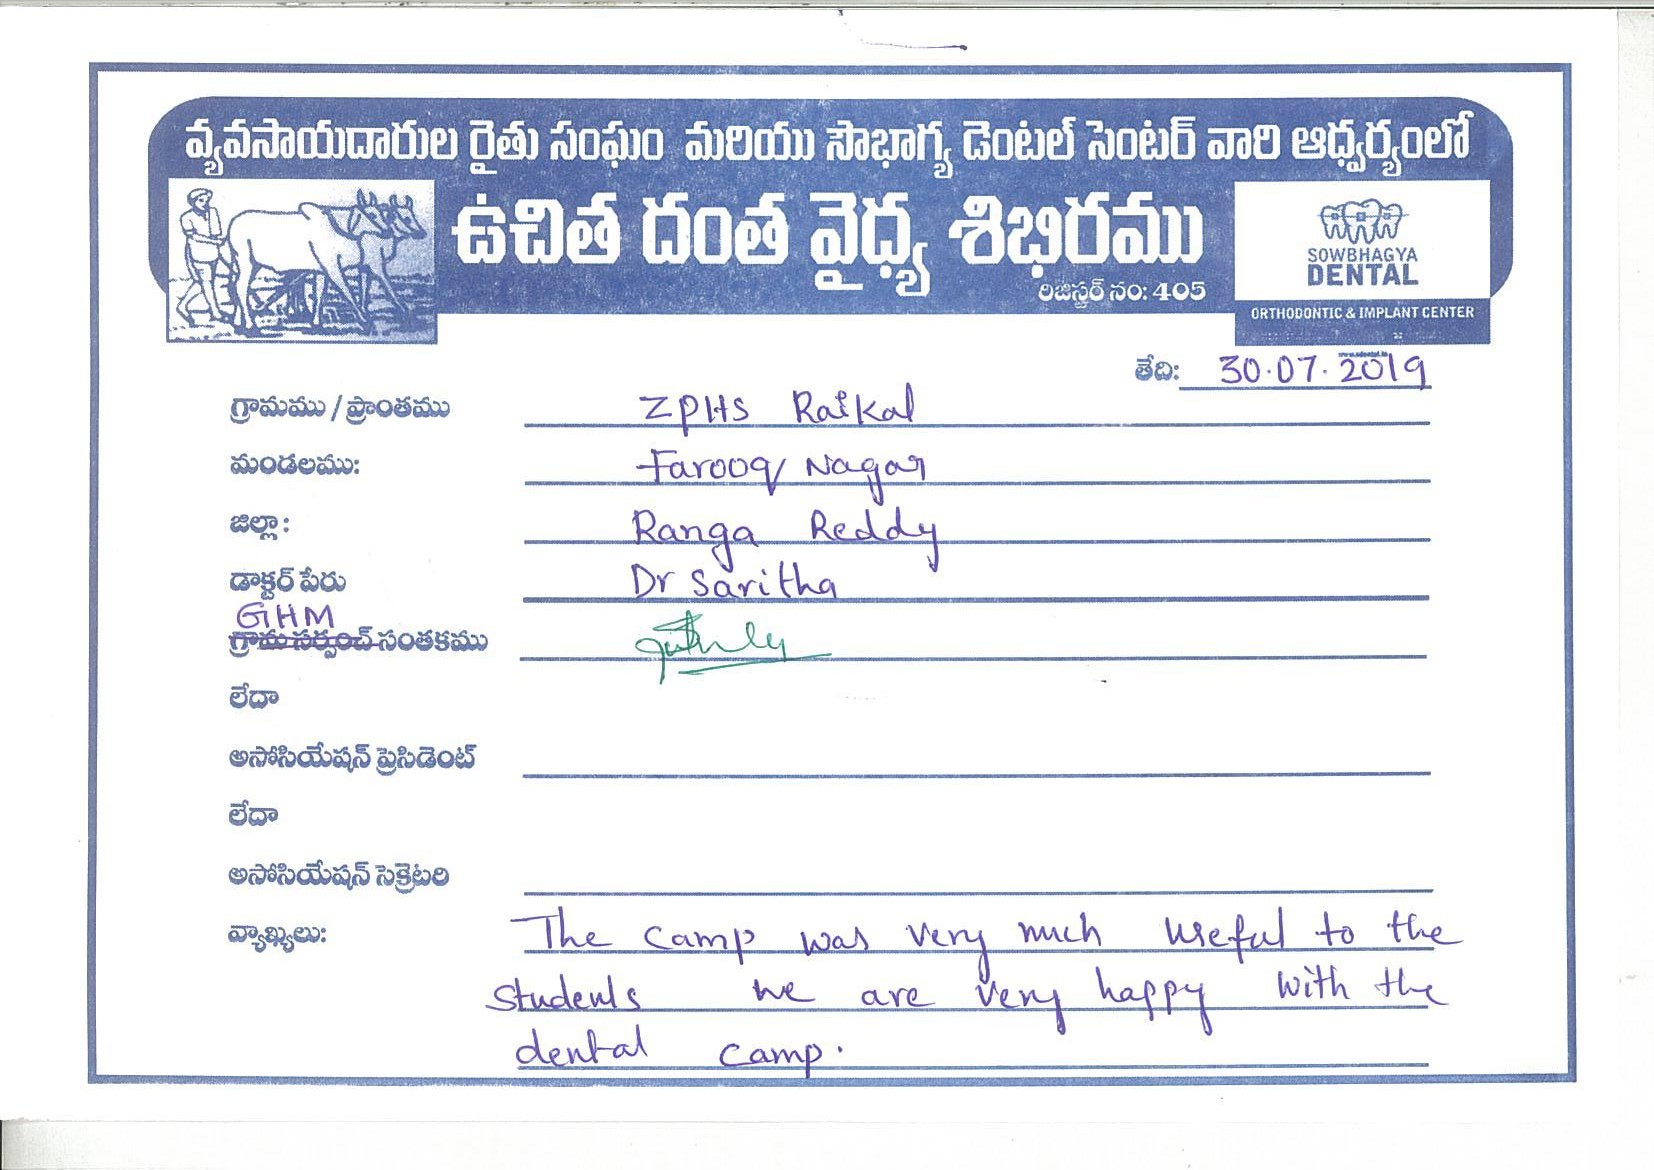 వ్యవసాయదారుల రైతు సంఘం మరియు సౌభాగ్య డెంటల్ సెంటర్ వారి ఆధ్వర్యంలో
ఉచిత దంత వైద్య శిభిరము
రిజిస్టర్ నం: 405
SOWBHAGYA
DENTAL
ORTHODONTIC & IMPLANT CENTER
తేది: 30.07.2019
గ్రామము / ప్రాంతము ZPHS Raikal
మండలము: Farooq Nagar
జిల్లా: Ranga Reddy
డాక్టర్ పేరు Dr Saritha
GHM
గ్రామ సర్పంచ్ సంతకము
లేదా
అసోసియేషన్ ప్రెసిడెంట్
లేదా
అసోసియేషన్ సెక్రెటరి
వ్యాఖ్యలు: The camp was very much useful to the
students we are very happy with the
dental camp.